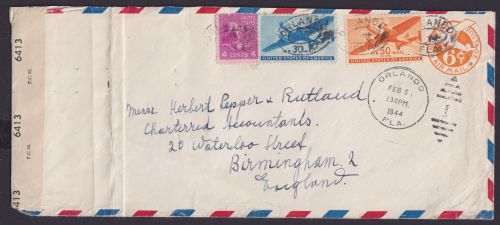 UNITED STATES POSTAGE
4 CENTS 4
30¢ AIR MAIL
UNITED STATES OF AMERICA
50 AIR MAIL
UNITED STATES OF AMERICA
ORLANDO
FLA.
6¢
AIR MAIL
ORLANDO
FEB 8
130PM
1944
FLA.
Messrs. Herbert Pepper & Rutland
Chartered Accountants.
20 Waterloo Street
Birmingham. 2
England.
6413
P.C. 90.
6413
P.C. 90.
6413